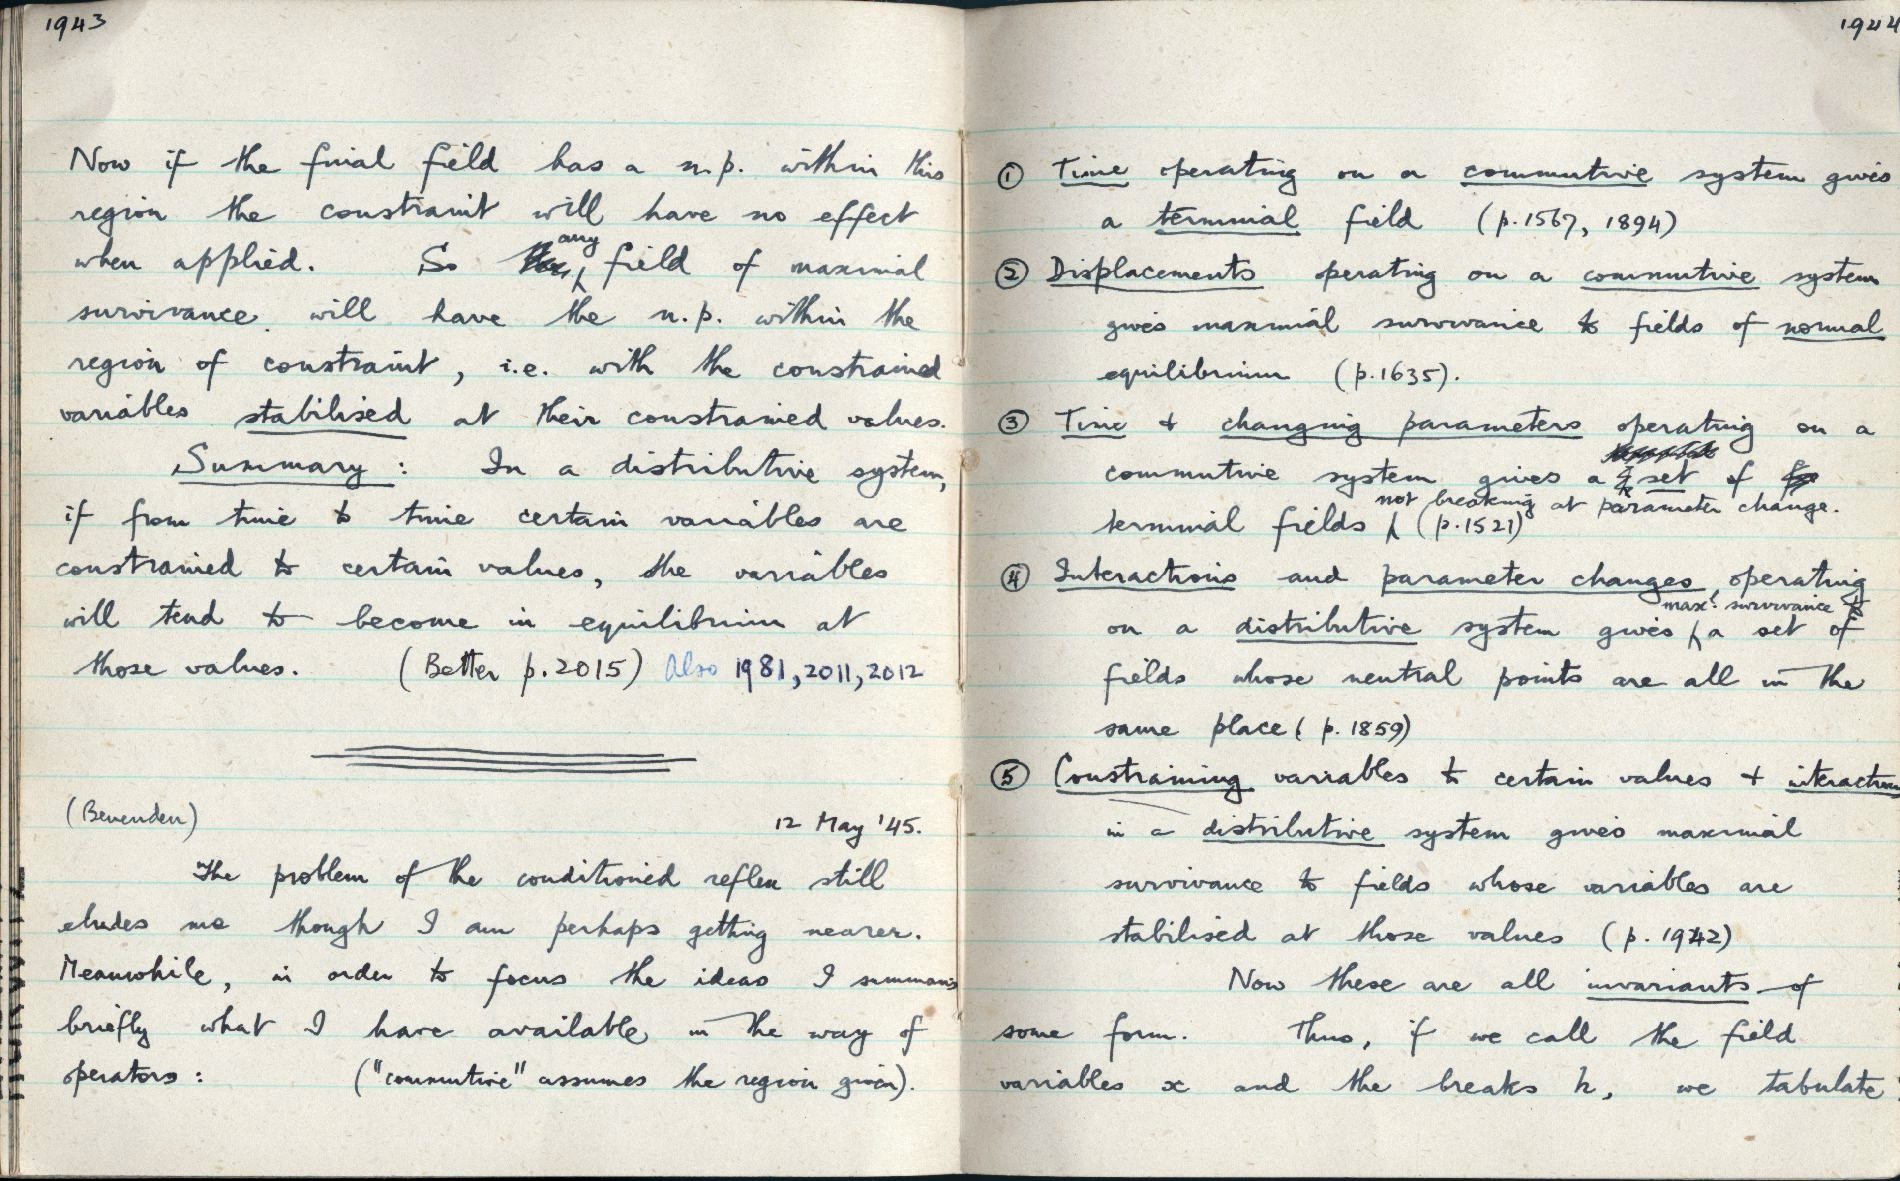 1943
Now if the final field has a n.p. within this
region the constraint will have no effect
when applied. So any field of maximal
survivance will have the n.p. within the
region of constraint, i.e. with the constrained
variables stabilised at their constrained values.
Summary: In a distributive system,
if from time to time certain variables are
constrained to certain values, the variables
will tend to become in equilibrium at
those values. (Better p.2015) Also 1981, 2011, 2012
(Benenden) 12 May '45.
The problem of the conditioned reflex still
eludes me though I am perhaps getting nearer.
Meanwhile, in order to focus the ideas I summaris
briefly what I have available in the way of
operators: ("commutive" assumes the region given).
1944
① Time operating on a commutive system gives
a terminal field (p.1567, 1894)
② Displacements operating on a commutive system
gives maximal survivance to fields of normal
equilibrium (p.1635).
③ Time + changing parameters operating on a
commutive system gives a set of
terminal fields not breaking at parameter change. (p.1521)
④ Interactions and parameter changes operating
on a distributive system gives max! survivance to a set of
fields whose neutral points are all in the
same place (p. 1859)
⑤ Constraining variables to certain values + interactions
in a distributive system gives maximal
survivance to fields whose variables are
stabilised at those values (p. 1942)
Now these are all invariants of
some form. Thus, if we call the field
variables x and the breaks h, we tabulate: